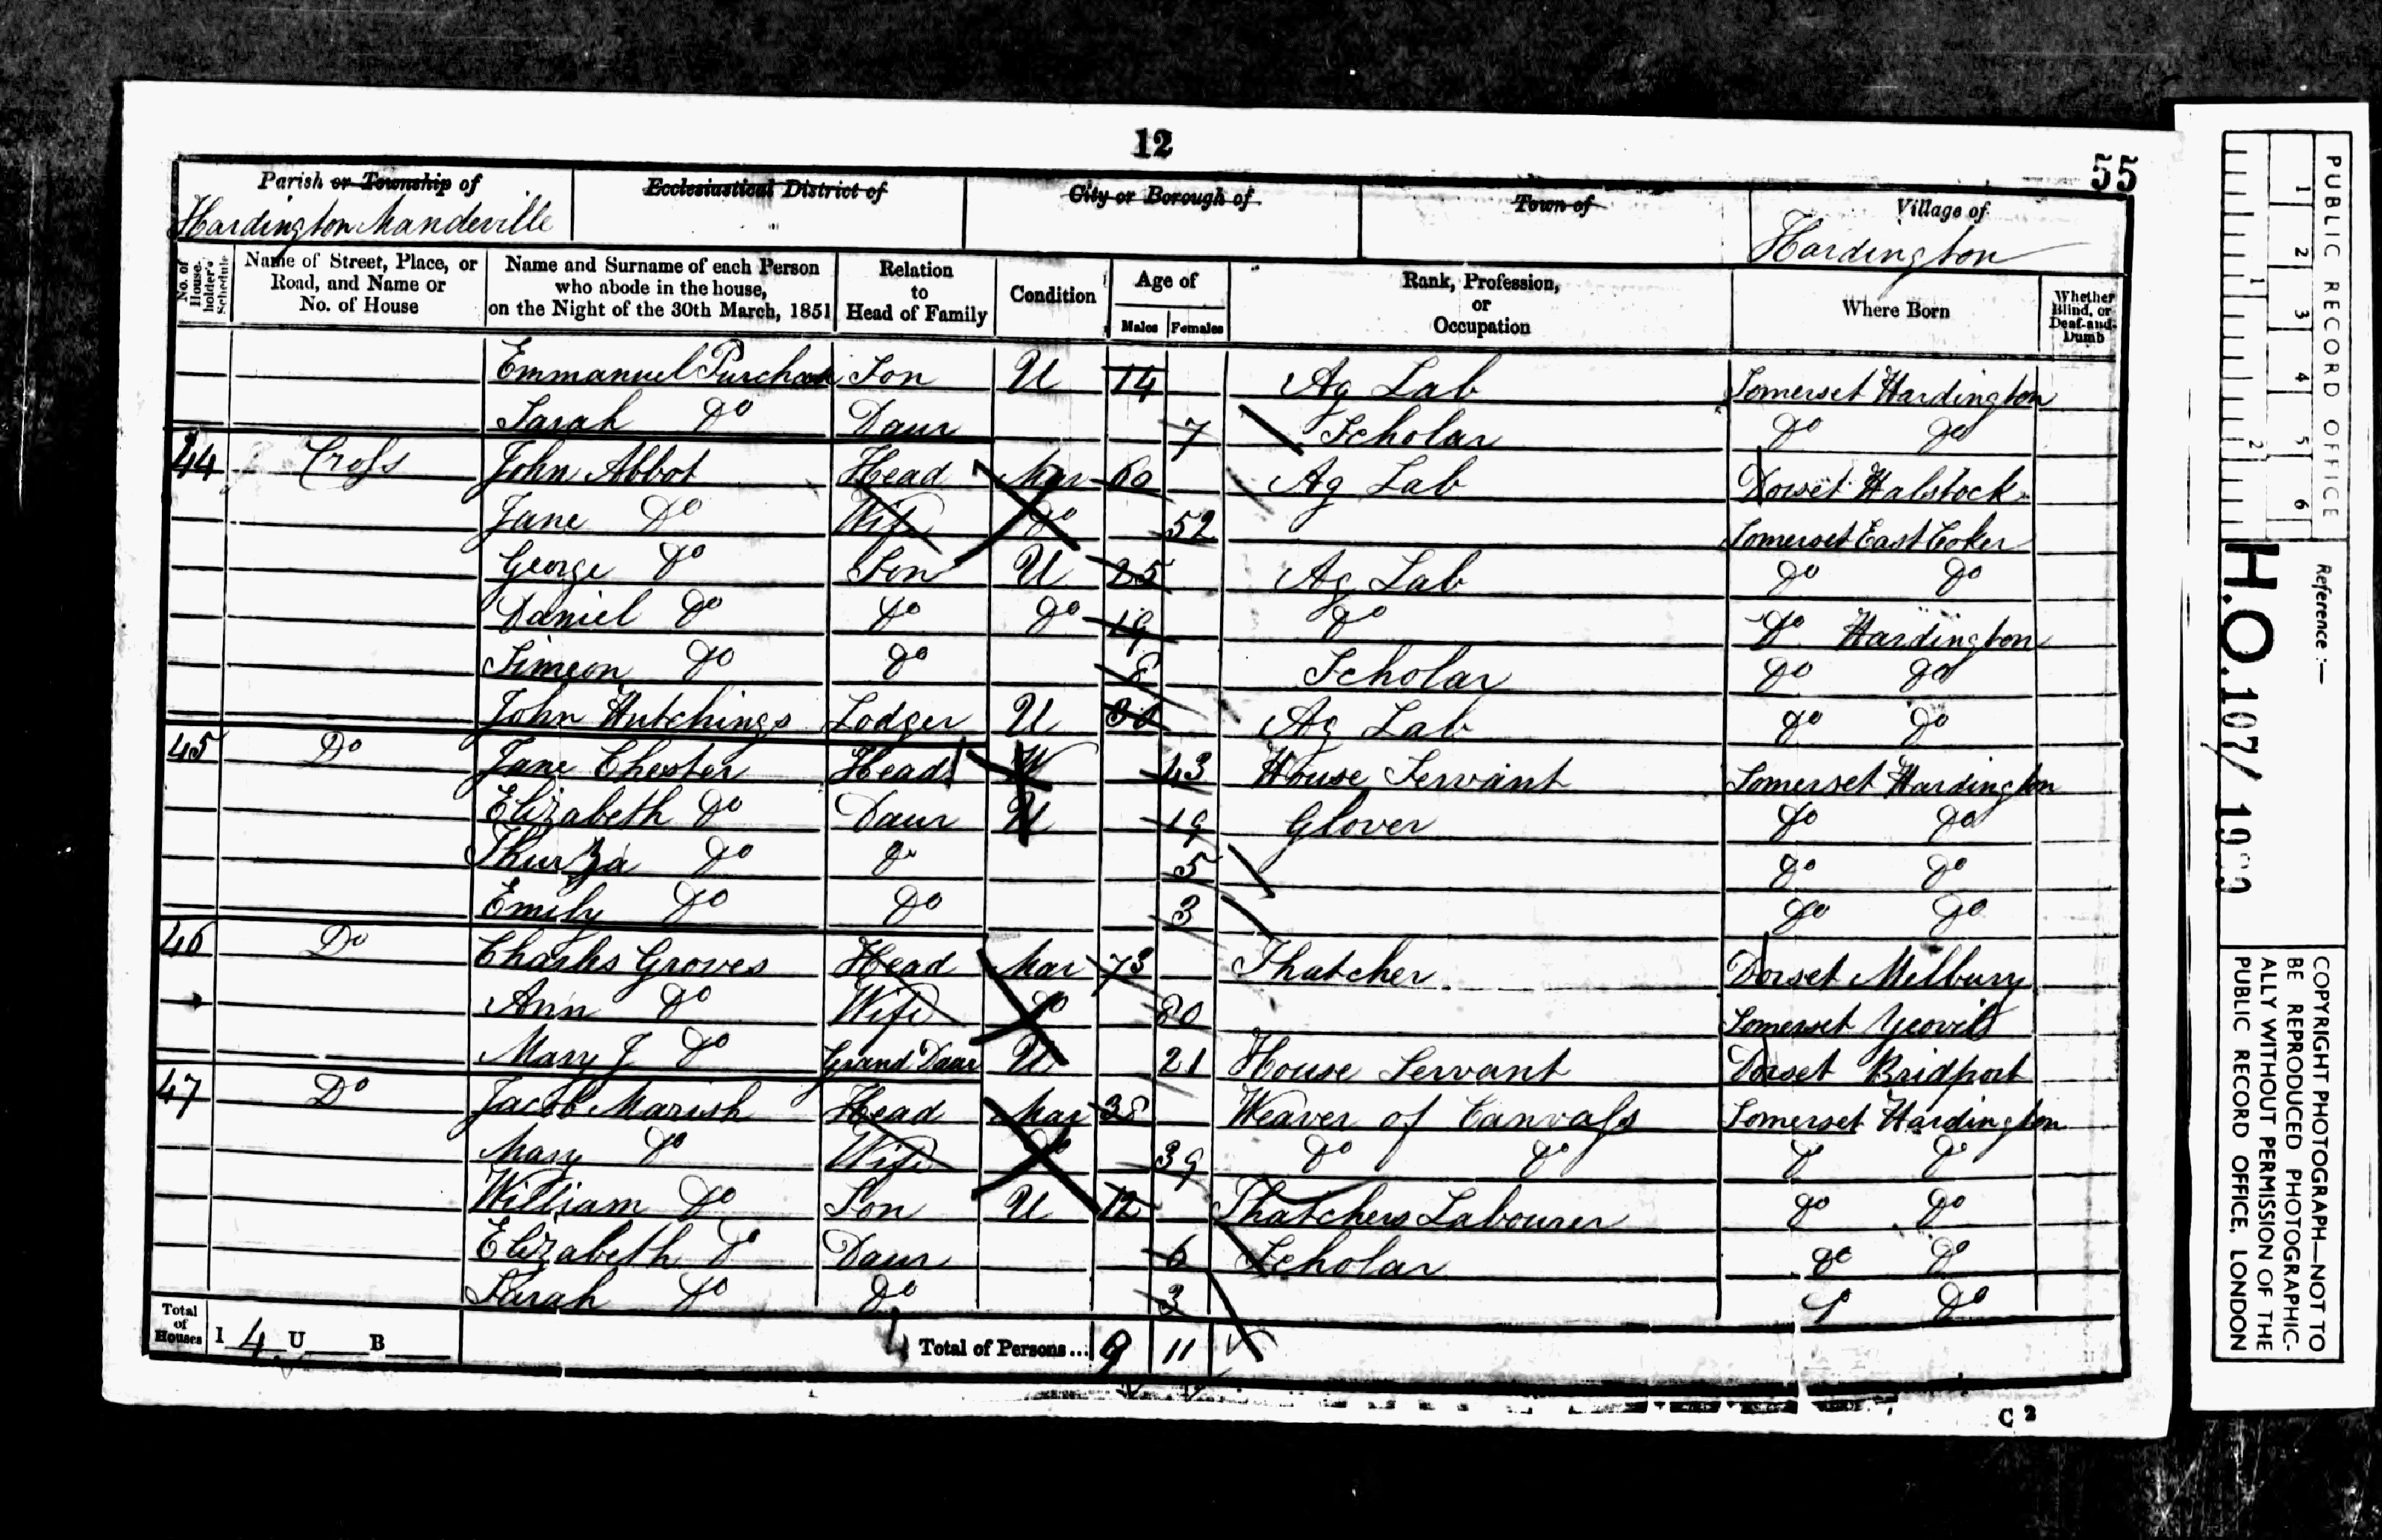 12
55
Parish or Township of
Hardington Mandeville
Ecclesiastical District of
City or Borough of
Town of
Village of
Hardington
No. of House-holder's Schedule
Name of Street, Place, or Road, and Name or No. of House
Name and Surname of each Person who abode in the house, on the Night of the 30th March, 1851
Relation to Head of Family
Condition
Age of
Males
Females
Rank, Profession, or Occupation
Where Born
Whether Blind, or Deaf-and-Dumb
Emmanuel Son U 14 Ag Lab Somerset Hardington
Sarah Do Daur 7 Scholar Do Do
44 Cross John Abbot Head Mar 60 Ag Lab Dorset Halstock
Jane Do Wife Do 52 Somerset East Coker
George Do Son U 25 Ag Lab Do Do
Daniel Do Do Do 19 Do Do Hardington
Simeon Do Do 8 Scholar Do Do
John Hutchings Lodger U 30 Ag Lab Do Do
45 Do Jane Chester Head W 43 House Servant Somerset Hardington
Elizabeth Do Daur U 19 Glover Do Do
Thurza Do Do 5 Do Do
Emily Do Do 3 Do Do
46 Do Charles Groves Head Mar 73 Thatcher Dorset Melbury
Ann Do Wife Do 80 Somerset Yeovil
Mary J Do Grand Daur U 21 House Servant Dorset Bridport
47 Do Jacob Marish Head Mar 38 Weaver of Canvass Somerset Hardington
Mary Do Wife Do 39 Do Do Do Do
William Do Son U 12 Thatchers Labourer Do Do
Elizabeth Do Daur 6 Scholar Do Do
Sarah Do Do 3 Do Do
Total of Houses I 4 U B
4 Total of Persons... 9 11
C 2
PUBLIC RECORD OFFICE
1 2 3 4 5 6
1 2
Reference :-
H.O. 107/
COPYRIGHT PHOTOGRAPH—NOT TO
BE REPRODUCED PHOTOGRAPHIC-
ALLY WITHOUT PERMISSION OF THE
PUBLIC RECORD OFFICE, LONDON